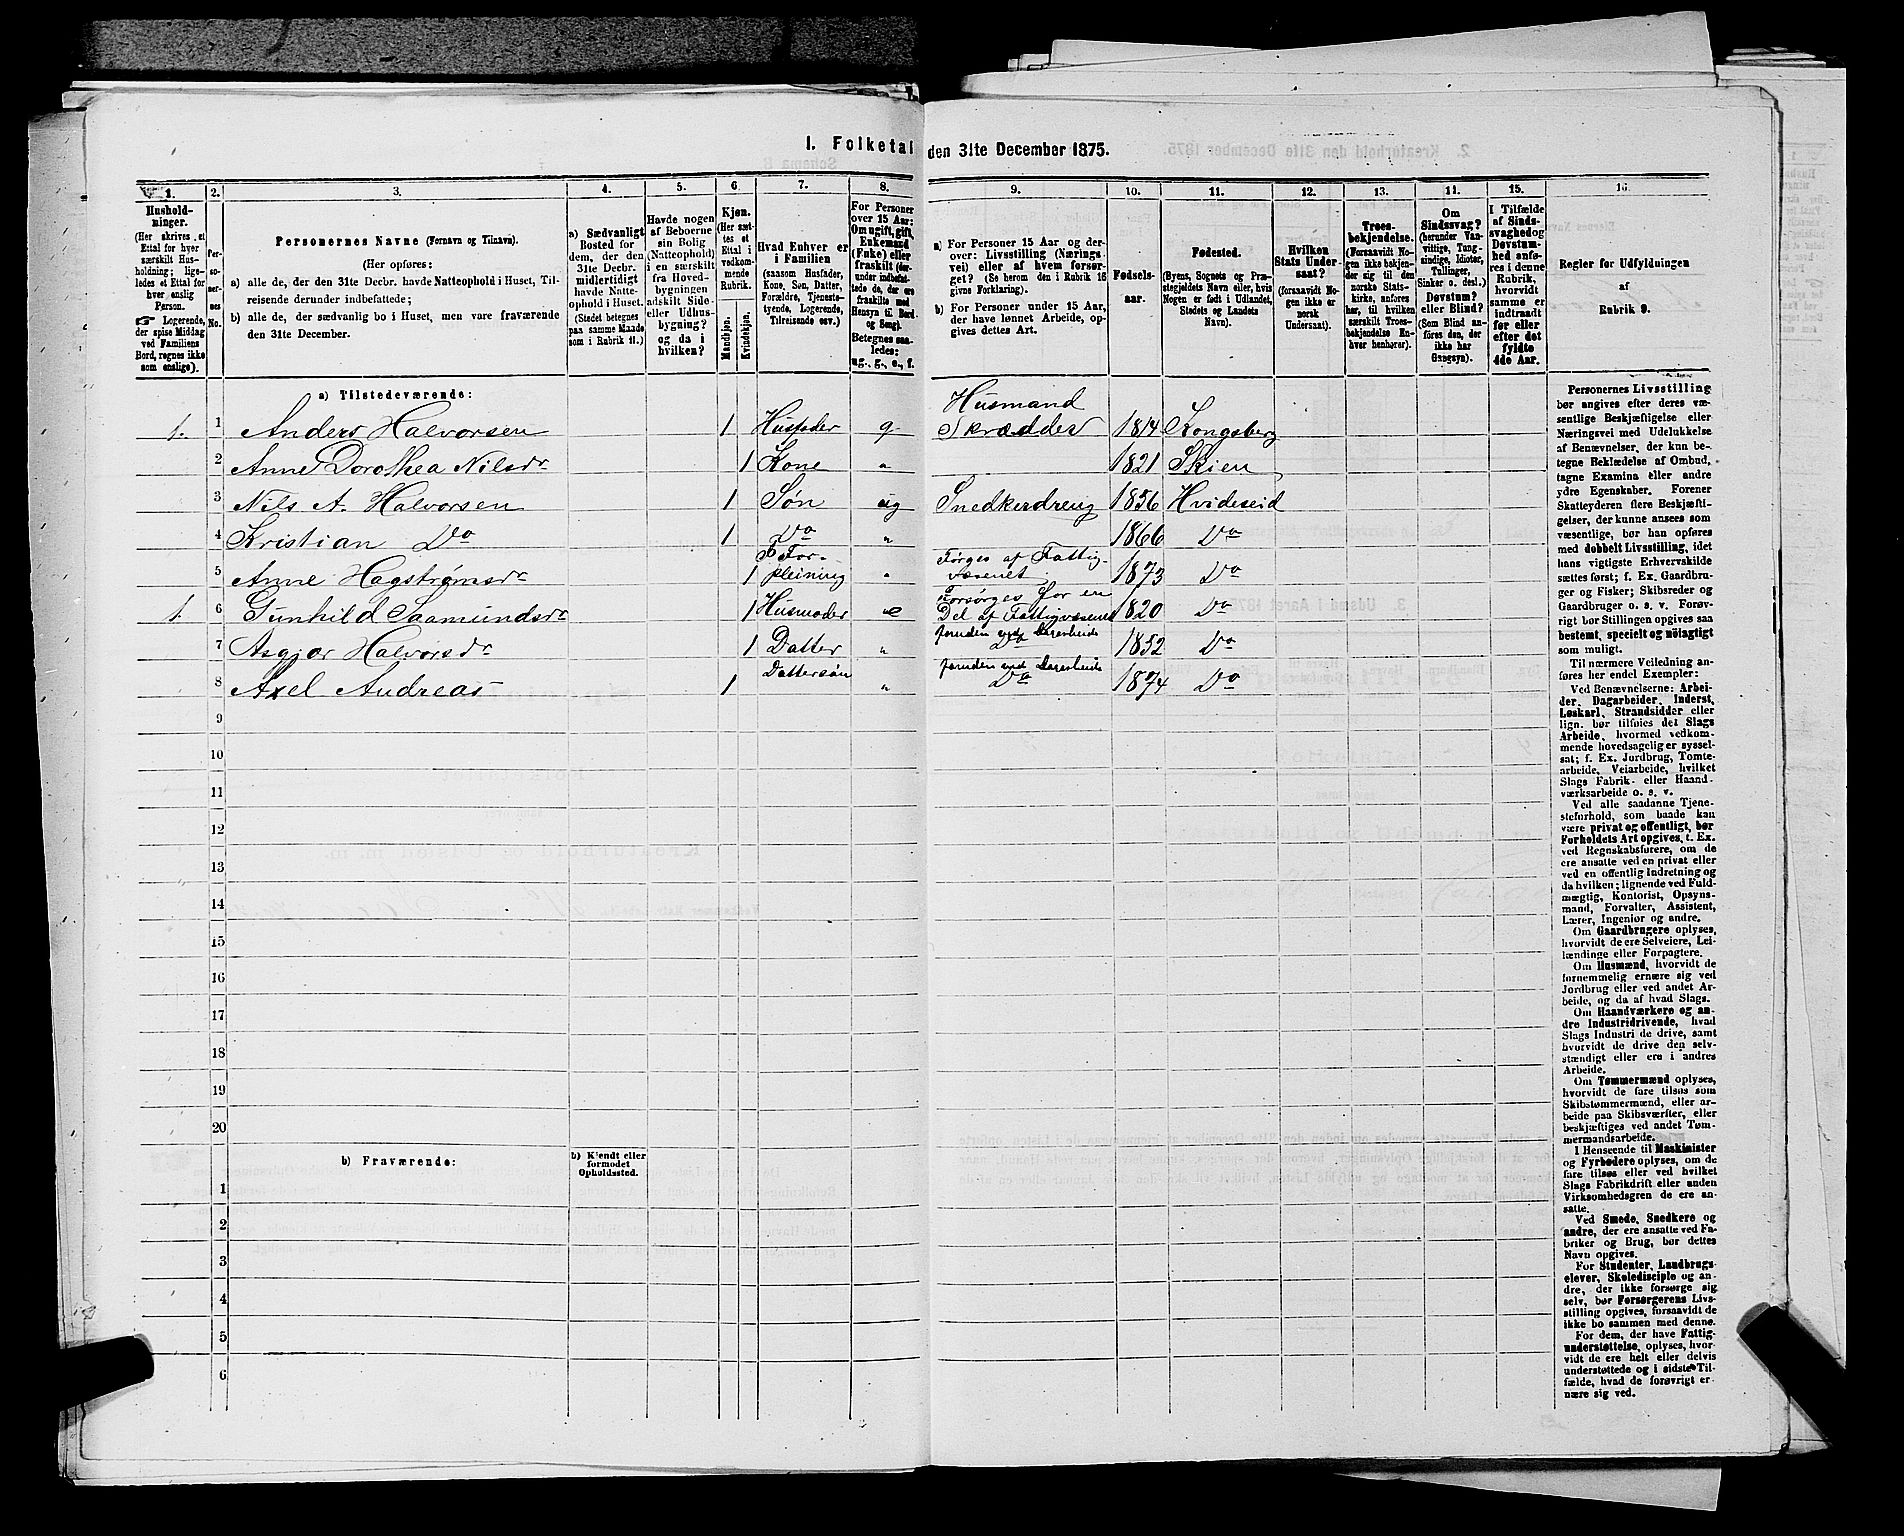 1. Folketal den 31te December 1875.
1. 2. 3. 4. 5. 6. 7. 8. 9. 10. 11. 12. 13. 11. 15. 16.
Hushold-
ninger.
(Her skrives et
Ettal for hver
særskilt Hus-
holdning; lige-
ledes et Ettal for
hver enslig
Person.
☞ Logerende,
der spise Middag
ved Familiens
Bord, regnes ikke
som enslige).
Per-
so-
ner-
nes
No.
Personernes Navne (Fornavn og Tilnavn).
(Her opføres:
a) alle de, der den 31te Decbr. havde Natteophold i Huset, Til-
reisende derunder indbefattede;
b) alle de, der sædvanlig bo i Huset, men vare fraværende
den 31te December.
a) Sædvanligt
Bosted for
dem, der den
31te Decbr.
midlertidigt
havde Natte-
ophold i Huset.
(Stedet betegnes
paa samme Maade
som i Rubrik 11.)
Havde nogen
af Beboerne
sin Bolig
(Natteophold)
i en særskilt
fra Hoved-
bygningen
adskilt Side-
eller Udhus-
bygning?
og da i
hvilken?
Kjøn.
(Her sæt-
tes et
Ettal i
vedkom-
mende
Rubrik.
Mandkjøn.
Kvindekjøn.
Hvad Enhver er
i Familien
(saasom Husfader,
Kone, Søn, Datter,
Forældre, Tjeneste-
tyende, Logerende,
Tilreisende osv.)
For Personer
over 15 Aar:
Om ugift, gift,
Enkemand
(Enke) eller
fraskilt (der-
under indbefat-
tede de, der ere
fraskilte med
Hensyn til Bord
og Seng).
Betegnes saa-
ledes:
ug., g., e., f.
a) For Personer 15 Aar og der-
over: Livsstilling (Nærings-
vei) eller af hvem forsør-
get? (Se herom den i Rubrik 16
givne Forklaring).
b) For Personer under 15 Aar,
der have lønnet Arbeide, op-
gives dettes Art.
Fødsels-
aar.
Fødested.
(Byens, Sognets og Præ-
stegjeldets Navn eller, hvis
Nogen er født i Udlandet,
Stedets og Landets
Navn).
Hvilken
Stats Under-
saat?
(forsaavidt No-
gen ikke er
norsk
Undersaat).
Troes-
bekjendelse.
(Forsaavidt No-
gen ikke bekjen-
der sig til den
norske Stats-
kirke, anføres
her, til hvilken
særskilt Troes-
bekjendelse En-
hver henhører).
Om
Sindssvag?
(herunder Van-
vittige, Tung-
sindige, Idioter,
Tullinger,
Sinker o. desl.)
Døvstum?
eller Blind?
(Som Blind an-
føres den, der
ikke har
Gangsyn).
I Tilfælde
af Sinds-
svaghed og
Døvstum-
hed anfø-
res i denne
Rubrik,
hvorvidt
samme er
indtraadt
før eller
efter det
fyldte
4de Aar.
Regler for Udfyldningen
af
Rubrik 9.
a) Tilstedeværende:
1. 1 Anders Halvorsen 1 Husfader g. Husmand Skrædder 1814 Kongsberg
2 Anne Dorothea Nilsdr 1 Kone " 1821 Skien
3 Nils A. Halvorsen 1 Søn ug Snedkerdreng 1856 Hvideseid
4 Kristian Do 1 Do " 1866 Do
5 Anne Hagstrømsdr 1 Forpleining " Førges af Fattigvæsenet 1873 Do
1. 6 Gunhild Saamundsdr 1 Husmoder e Forsørges for en Del af Fattigvæsenet 1820 Do
7 Asgjør Halvorsdr 1 Datter " Do 1852 Do
8 Axel Andreas 1 Dattersøn " Do 1874 Do
9
10
11
12
13
14
15
16
17
18
19
20
b) Fraværende: b) Kjendt eller
formodet
Opholdssted.
1
2
3
4
5
6
Personernes Livsstilling
bør angives efter deres væ-
sentlige Beskjæftigelse eller
Næringsvei med Udelukkelse
af Benævnelser, der kun be-
tegne Beklædelse af Ombud,
tagne Examina eller andre
ydre Egenskaber. Forener
Skatteyderen flere Beskjæfti-
gelser, der kunne ansees som
væsentlige, bør han opføres
med dobbelt Livsstilling, idet
hans vigtigste Erhvervskilde
sættes først; f. Ex. Gaardbru-
ger og Fisker; Skibsreder og
Gaardbruger o. s. v. Forøv-
rigt bør Stillingen opgives saa
bestemt, specielt og nøiagtigt
som muligt.
Til nærmere Veiledning an-
føres her endel Exempler:
Ved Benævnelserne: Arbei-
der, Dagarbeider, Inderst,
Løskarl, Strandsidder eller
lign. bør tilføies det Slags
Arbeide, hvormed vedkom-
mende hovedsagelig er syssel-
sat; f. Ex. Jordbrug, Tomte-
arbeide, Veiarbeide, hvilket
Slags Fabrik- eller Haand-
værksarbeide o. s. v.
Ved alle saadanne Tjene-
steforhold, som baade kan
være privat og offentligt, bør
Forholdets Art opgives, t. Ex.
ved Regnskabsførere, om de
ere ansatte ved en privat eller
ved en offentlig Indretning og
da hvilken; lignende ved Fuld-
mægtig, Kontorist, Opsyns-
mand, Forvalter, Assistent,
Lærer, Ingeniør og andre.
Om Gaardbrugere oplyses,
hvorvidt de ere Selveiere, Lei-
lændinge eller Forpagtere.
Om Husmænd, hvorvidt de
fornemmelig ernære sig ved
Jordbrug eller ved andet Ar-
beide, og da af hvad Slags.
Om Haandværkere og an-
dre Industridrivende, hvad
Slags Industri de drive, samt
hvorvidt de drive den selv-
stændigt eller ere i andres
Arbeide.
Om Tømmermænd oplyses,
hvorvidt de fare tilsøs som
Skibstømmermænd, eller ar-
beide paa Skibsværfter, eller
beskjæftiges ved andet Tøm-
mermandsarbeide.
I Henseende til Maskinister
og Fyrbødere oplyses, om de
fare tilsøs eller ved hvilket
Slags Fabrikdrift eller anden
Virksomhedsgren de ere an-
satte.
Ved Smede, Snedkere og
andre, der ere ansatte ved Fa-
briker og Brug, bør dettes
Navn opgives.
For Studenter, Landbrugs-
elever, Skoledisciple og an-
dre, der ikke forsørge sig
selv, bør Forsørgerens Livs-
stilling opgives, forsaavidt de
ikke bo sammen med denne.
For dem, der have Fattig-
understøttelse, oplyses, hvor-
vidt de ere helt eller delvis
understøttede og i sidste Til-
fælde, hvad de forøvrigt er-
nære sig ved.